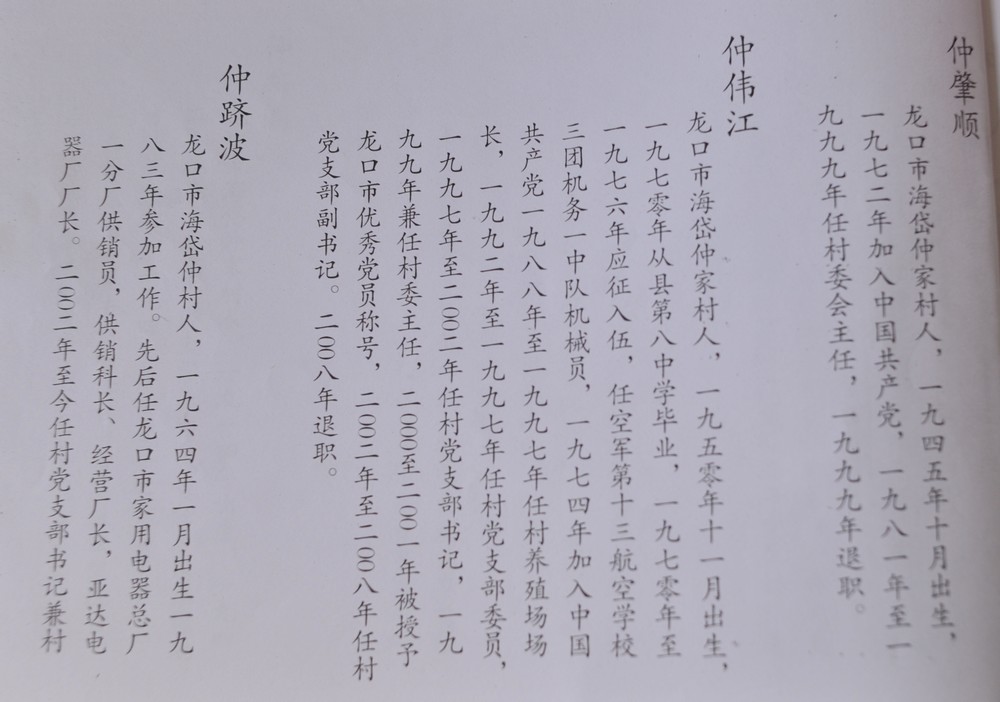 仲肇顺
龙口市海岱仲家村人，一九四五年十月出生，
一九七二年加入中国共产党，一九八一年至一
九九九年任村委会主任，一九九九年退职。
仲伟江
龙口市海岱仲家村人，一九五零年十一月出生，
一九七零年从县第八中学毕业，一九七零年至
一九七六年应征入伍，任空军第十三航空学校
三团机务一中队机械员，一九七四年加入中国
共产党一九八八年至一九九七年任村养殖场场
长，一九九二年至一九九七年任村党支部委员，
一九九七年至二〇〇二年任村党支部书记，一九
九九年兼任村委主任，二〇〇〇至二〇〇一年被授予
龙口市优秀党员称号，二〇〇二年至二〇〇八年任村
党支部副书记。二〇〇八年退职。
仲跻波
龙口市海岱仲村人，一九六四年一月出生一九
八三年参加工作。先后任龙口市家用电器总厂
一分厂供销员，供销科长、经营厂长，亚达电
器厂厂长。二〇〇二年至今任村党支部书记兼村